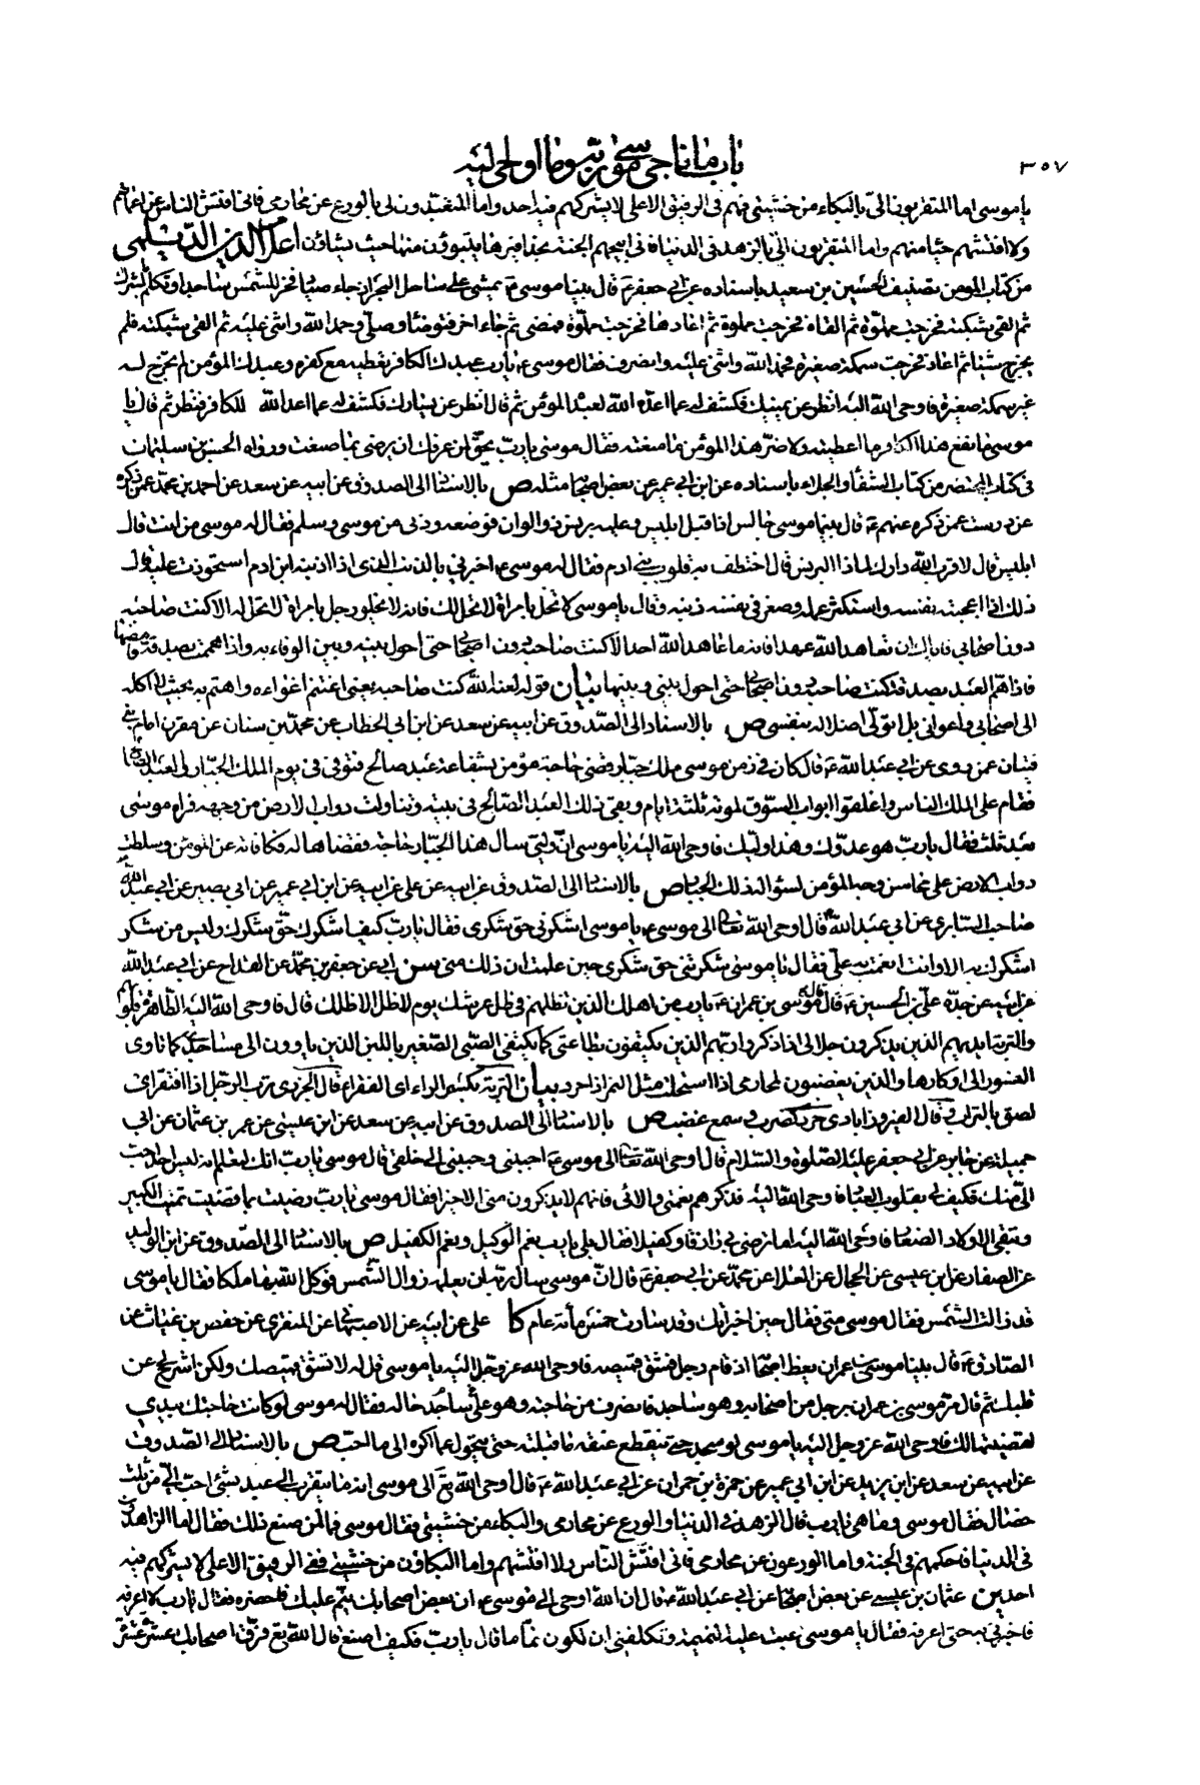 باب ما ناجى موسى ربه وما اوحى اليه
٣٥٧
يا موسى اما المتقربون الىّ بالبكاء من خشيتي فهم في الرفيق الاعلى لا يشركهم فيه احد واما المتعبدون لي بالورع عن محارمي فاني افتش الناس عن اعمالهم
ولا افتشهم حياء منهم واما المتقربون الي بالزهد في الدنيا فاني ابيحهم الجنة بحذافيرها يتبوؤن منها حيث يشاؤن اعلام الدين الديلمي
من كتاب المؤمن تصنيف الحسين بن سعيد باسناده عن ابي جعفر ع قال بينا موسى ع يمشي على ساحل البحر اذ جاء صياد فخر للشمس ساجدا وتكلم بالشرك
ثم القى شبكته فخرجت مملوة ثم القاها فخرجت مملوة ثم اعادها فخرجت مملوة فمضى ثم جاء اخر فتوضأ وصلى وحمد الله واثنى عليه ثم القى شبكته فلم
يخرج شيئا ثم اعاد فخرجت سمكة صغيرة فحمد الله واثنى عليه وانصرف فقال موسى ع يا رب عبدك الكافر تعطيه مع كفره وعبدك المؤمن لم يخرج له
غير سمكة صغيرة فاوحى الله اليه انظر عن يمينك فكشف له عما اعده الله لعبده المؤمن ثم قال انظر عن يسارك فكشف له عما اعد الله للكافر فنظر ثم قال يا
موسى ما نفع هذا الكافر ما اعطيته ولا ضر هذا المؤمن ما منعته فقال موسى يا رب يحق لمن عرفك ان يرضى بما صنعت ورواه الحسن بن سليمان
في كتاب المحتضر من كتاب الشفاء والجلاء باسناده عن ابن ابي عمير عن بعض اصحابنا مثله ص بالاسناد الى الصدوق عن ابيه عن سعد عن احمد بن محمد عمن ذكره
عن درست عمن ذكره عنهم ع قال بينما موسى جالس اذ اقبل ابليس وعليه برنس ذو الوان فوضعه ودنى من موسى وسلم فقال له موسى من انت قال
ابليس قال لا قرب الله دارك لماذا البرنس قال اختطف به قلوب بني ادم فقال له موسى ع اخبرني بالذنب الذي اذا اذنبه ابن ادم استحوذت عليه قال
ذلك اذا اعجبته نفسه واستكثر عمله وصغر في نفسه ذنبه وقال يا موسى لا تخل بامراة لا تحل لك فانه لا يخلو رجل بامراة لا تحل له الا كنت صاحبه
دون اصحابي واياك ان تعاهد الله عهدا فانه ما عاهد الله احد الا كنت صاحبه دون اصحابي حتى احول بينه وبين الوفاء به واذا هممت بصدقة فامضها
فاذا هم العبد بصدقة كنت صاحبه دون اصحابي حتى احول بينه وبينها بيان قوله لعنه الله كنت صاحبه يعني اغتنم اغواءه واهتم به بحيث لا اكله
الى اصحابي واعواني بل اتولى اضلاله بنفسي ص بالاسناد الى الصدوق عن ابيه عن سعد عن ابن ابي الخطاب عن محمد بن سنان عن مقرن امام بني
فتيان عمن روى عن ابي عبد الله ع قال كان في زمن موسى ملك جبار قضى حاجة مؤمن بشفاعة عبد صالح فتوفي في يوم الملك الجبار والعبد الصالح
فقام على الملك الناس واغلقوا ابواب السوق لموته ثلثة ايام وبقي ذلك العبد الصالح في بيته وتناولت دواب الارض من وجهه فراه موسى
بعد ثلث فقال يا رب هو عدوك وهذا وليك فاوحى الله اليه يا موسى ان وليي سأل هذا الجبار حاجة فقضاها له فكافاته عن المؤمن وسلطت
دواب الارض على محاسن وجه المؤمن لسؤاله ذلك الجبار ص بالاسناد الى الصدوق عن ابيه عن علي عن ابيه عن ابن ابي عمير عن ابي بصير عن ابي عبد الله
صاحب السابري عن ابي عبد الله ع قال اوحى الله تعالى الى موسى ع يا موسى اشكرني حق شكري فقال يا رب كيف اشكرك حق شكرك وليس من شكر
اشكرك به الا وانت انعمت به علي فقال يا موسى شكرتني حق شكري حين علمت ان ذلك مني سن ابي عن جعفر بن محمد عن القداح عن ابي عبد الله
عن ابيه عن جده علي بن الحسين ع قال قال موسى بن عمران ع يا رب من اهلك الذين تظلهم في ظل عرشك يوم لا ظل الا ظلك قال فاوحى الله اليه الطاهرة قلوبهم
والتربة ايديهم الذين يذكرون جلالي اذا ذكروا ربهم الذين يكتفون بطاعتي كما يكتفي الصبي الصغير باللبن الذين ياوون الى مساجدي كما تاوى
النسور الى اوكارها والذين يغضبون لمحارمي اذا استحلت مثل النمر اذا حرد بيان التربة بكسر الراء اي الفقراء قال الجزري ترب الرجل اذا افتقر اي
لصق بالتراب قال الفيروزابادي حرد كضرب وسمع غضب ص بالاسناد الى الصدوق عن ابيه عن سعد عن ابن عيسى عن عمر بن عثمان عن ابي
جميلة عن جابر عن ابي جعفر عليه الصلوة والسلام قال اوحى الله تعالى الى موسى ع احبني وحببني الى خلقي قال موسى يا رب انك لتعلم انه ليس احد احب
الي منك فكيف لي بقلوب العباد فاوحى الله اليه فذكرهم نعمتي والائي فانهم لا يذكرون مني الا خيرا فقال موسى يا رب رضيت بما قضيت تميت الكبير
وتبقي الاولاد الصغار فاوحى الله اليه اما ترضى بي رازقا وكفيلا فقال بلى يا رب نعم الوكيل ونعم الكفيل ص بالاسناد الى الصدوق عن ابن الوليد
عن الصفار عن ابن عيسى عن الحجال عن العلا عن محمد عن ابي جعفر ع قال ان موسى سال ربه ان يعلمه زوال الشمس فوكل الله بها ملكا فقال يا موسى
قد زالت الشمس فقال موسى متى فقال حين اخبرتك وقد سارت خمس مأة عام كا علي عن ابيه عن الاصبهاني عن المنقري عن حفص بن غياث عن
الصادق ع قال بينا موسى بن عمران يعظ اصحابه اذ قام رجل فشق قميصه فاوحى الله عز وجل اليه يا موسى قل له لا تشق قميصك ولكن اشرح لي عن
قلبك ثم قال مر موسى بن عمران برجل من اصحابه وهو ساجد فانصرف من حاجته وهو ساجد على حاله فقال له موسى لو كانت حاجتك بيدي
لقضيتها لك فاوحى الله عز وجل اليه يا موسى لو سجد حتى ينقطع عنقه ما قبلته حتى يتحول عما اكره الى ما احب ص بالاسناد الى الصدوق
عن ابيه عن سعد عن ابن يزيد عن ابن ابي عمير عن حمزة بن حمران عن ابي عبد الله ع قال اوحى الله تع الى موسى انه ما يتقرب الي عبد بشئ احب الي من ثلث
خصال فقال موسى وما هي يا رب قال الزهد في الدنيا والورع عن محارمي والبكاء من خشيتي فقال موسى فما لمن صنع ذلك فقال اما الزاهدون
في الدنيا فاحكمهم في الجنة واما الورعون عن محارمي فاني افتش الناس ولا افتشهم واما البكاؤن من خشيتي ففي الرفيق الاعلى لا يشركهم فيه
احد ين عثمان بن عيسى عن بعض اصحابنا عن ابي عبد الله ع قال ان الله اوحى الى موسى ع ان بعض اصحابك ينم عليك فاحذره فقال يا رب لا اعرفه
فاخبرني به حتى اعرفه فقال يا موسى عبت عليه النميمة وتكلفني ان اكون نماما قال يا رب فكيف اصنع قال الله تع فرق اصحابك عشرة عشرة